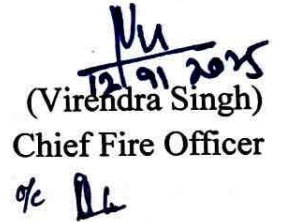 12/9/2025
(Virendra Singh)
Chief Fire Officer
o/c